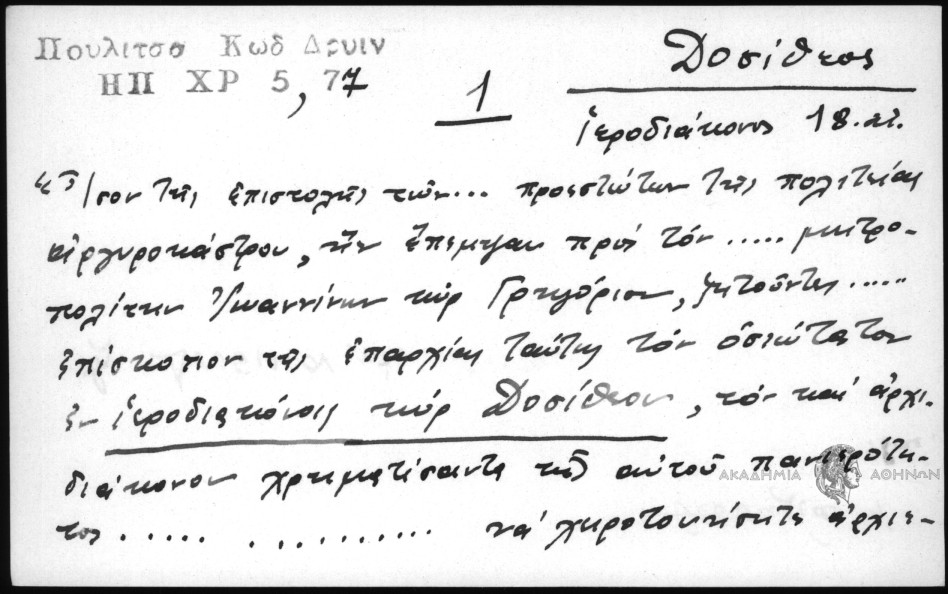 Πουλιτσα Κωδ Δρυιν
ΗΠ ΧΡ 5, 77
1
Δοσίθεος
ἱεροδιάκονος 18. αἰ.
«Ἴσον τῆς ἐπιστολῆς τῶν... προεστώτων τῆς πολιτείας
Ἀργυροκάστρου, ἣν ἔπεμψαν πρὸς τὸν ..... μητρο-
πολίτην Ἰωαννίνων κὺρ Γρηγόριον, ζητοῦντες .....
ἐπίσκοπον τῆς ἐπαρχίας ταύτης τὸν ὁσιώτατον
ἐν ἱεροδιακόνοις κὺρ Δοσίθεον, τὸν καὶ ἀρχι-
διάκονον χρηματίσαντα τῆς αὐτοῦ πανιερότη-
τος ..... .......... νὰ χειροτονήσητε ἀρχιε-
ΑΚΑΔΗΜΙΑ ΑΘΗΝΩΝ